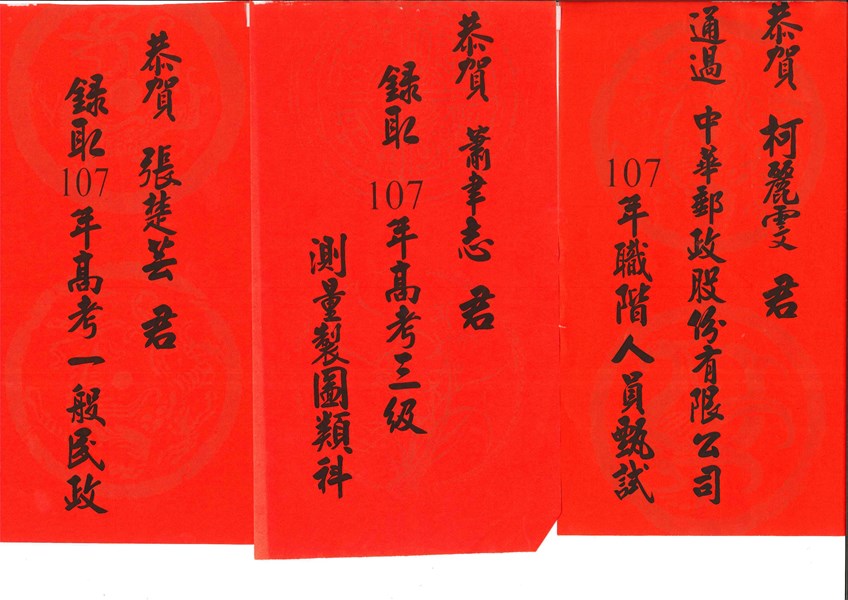 恭賀 柯麗雯 君
通過 中華郵政股份有限公司
107年職階人員甄試
恭賀 蕭聿志 君
錄取 107年高考三級
測量製圖類科
恭賀 張楚芸 君
錄取107年高考一般民政